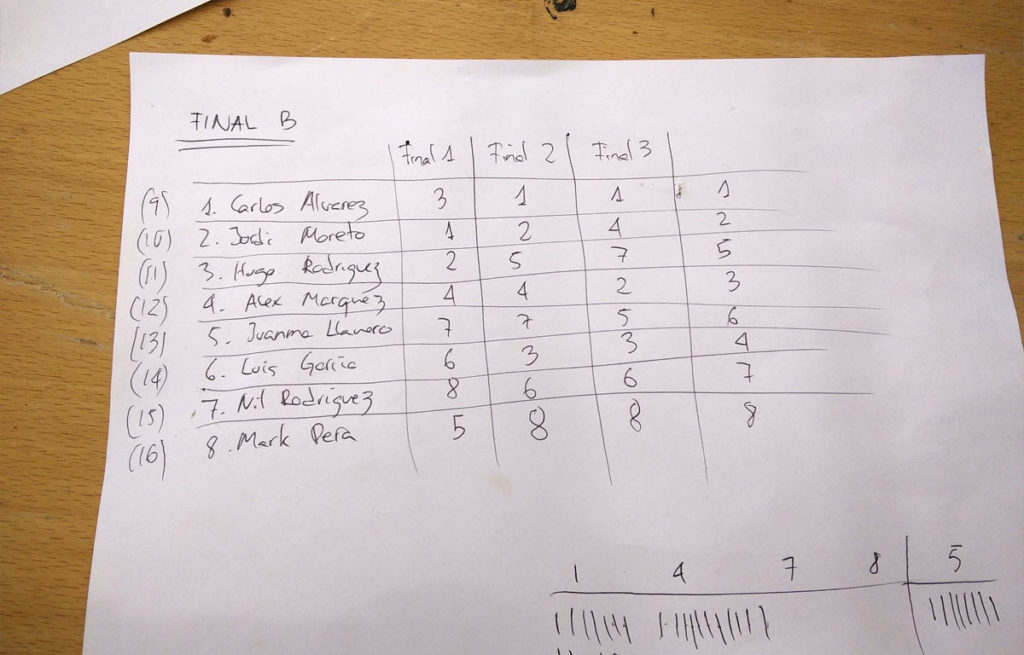 FINAL B
Final 1 Final 2 Final 3
(9) 1. Carlos Alvarez 3 1 1 1
(10) 2. Jordi Moreto 1 2 4 2
(11) 3. Hugo Rodriguez 2 5 7 5
(12) 4. Alex Marquez 4 4 2 3
(13) 5. Juanma Llamoro 7 7 5 6
(14) 6. Luis Garcia 6 3 3 4
(15) 7. Nil Rodriguez 8 6 6 7
(16) 8. Mark Pera 5 8 8 8
1 4 7 8 5